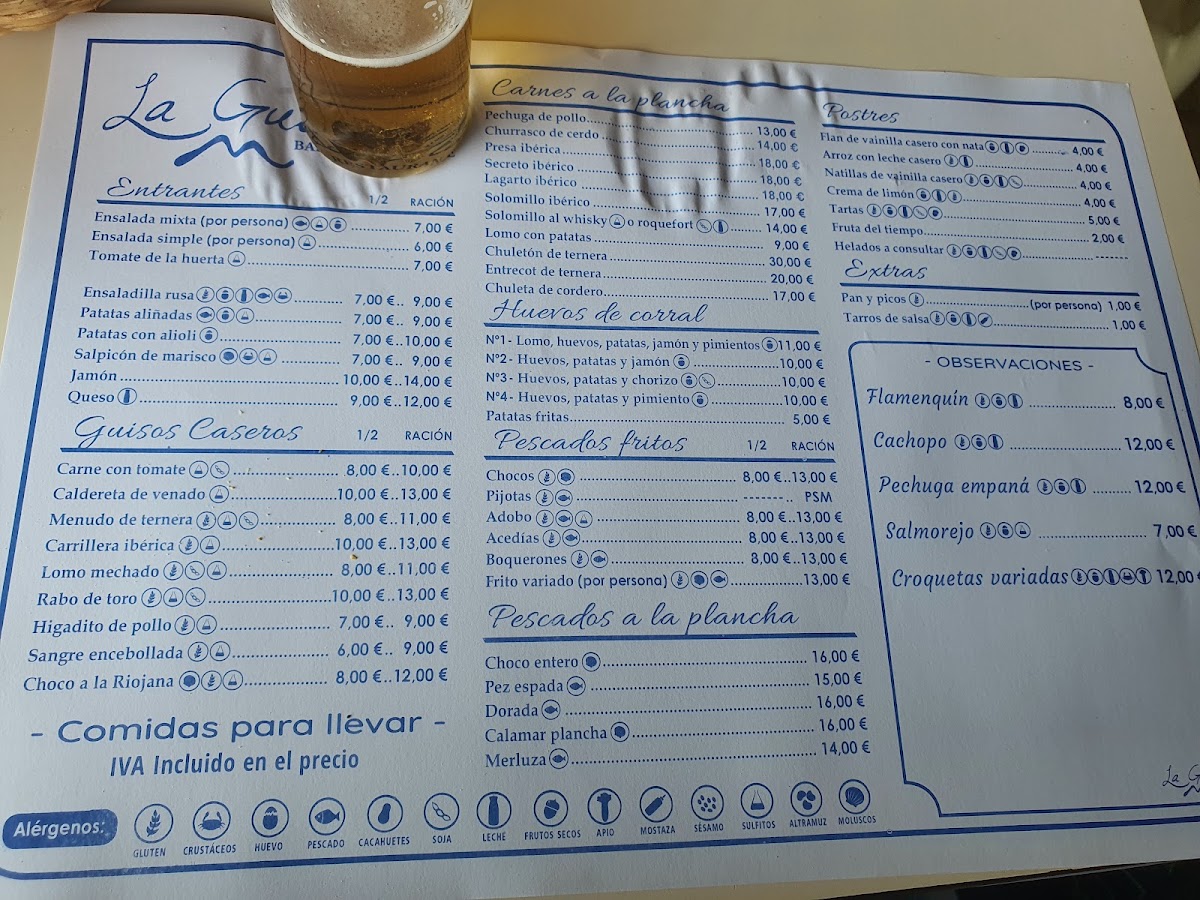 La
Entrantes 1/2 RACIÓN
Ensalada mixta (por persona) 7,00 €
Ensalada simple (por persona) 6,00 €
Tomate de la huerta 7,00 €
Ensaladilla rusa 7,00 €.. 9,00 €
Patatas aliñadas 7,00 €.. 9,00 €
Patatas con alioli 7,00 €..10,00 €
Salpicón de marisco 7,00 €.. 9,00 €
Jamón 10,00 €..14,00 €
Queso 9,00 €..12,00 €
Guisos Caseros 1/2 RACIÓN
Carne con tomate 8,00 €..10,00 €
Caldereta de venado 10,00 €..13,00 €
Menudo de ternera 8,00 €..11,00 €
Carrillera ibérica 10,00 €..13,00 €
Lomo mechado 8,00 €..11,00 €
Rabo de toro 10,00 €..13,00 €
Higadito de pollo 7,00 €.. 9,00 €
Sangre encebollada 6,00 €.. 9,00 €
Choco a la Riojana 8,00 €..12,00 €
- Comidas para llevar -
IVA Incluido en el precio
Carnes a la plancha
Pechuga de pollo 13,00 €
Churrasco de cerdo 14,00 €
Presa ibérica 18,00 €
Secreto ibérico 18,00 €
Lagarto ibérico 18,00 €
Solomillo ibérico 17,00 €
Solomillo al whisky o roquefort 14,00 €
Lomo con patatas 9,00 €
Chuletón de ternera 30,00 €
Entrecot de ternera 20,00 €
Chuleta de cordero 17,00 €
Huevos de corral
Nº1- Lomo, huevos, patatas, jamón y pimientos 11,00 €
Nº2- Huevos, patatas y jamón 10,00 €
Nº3- Huevos, patatas y chorizo 10,00 €
Nº4- Huevos, patatas y pimiento 10,00 €
Patatas fritas 5,00 €
Pescados fritos 1/2 RACIÓN
Chocos 8,00 €..13,00 €
Pijotas -------.. PSM
Adobo 8,00 €..13,00 €
Acedías 8,00 €..13,00 €
Boquerones 8,00 €..13,00 €
Frito variado (por persona) 13,00 €
Pescados a la plancha
Choco entero 16,00 €
Pez espada 15,00 €
Dorada 16,00 €
Calamar plancha 16,00 €
Merluza 14,00 €
Postres
Flan de vainilla casero con nata 4,00 €
Arroz con leche casero 4,00 €
Natillas de vainilla casero 4,00 €
Crema de limón 4,00 €
Tartas 5,00 €
Fruta del tiempo 2,00 €
Helados a consultar ------
Extras
Pan y picos (por persona) 1,00 €
Tarros de salsa 1,00 €
- OBSERVACIONES -
Flamenquín 8,00 €
Cachopo 12,00 €
Pechuga empaná 12,00 €
Salmorejo 7,00 €
Croquetas variadas 12,00 €
La
Alérgenos:
GLUTEN CRUSTÁCEOS HUEVO PESCADO CACAHUETES SOJA LECHE FRUTOS SECOS APIO MOSTAZA SÉSAMO SULFITOS ALTRAMUZ MOLUSCOS